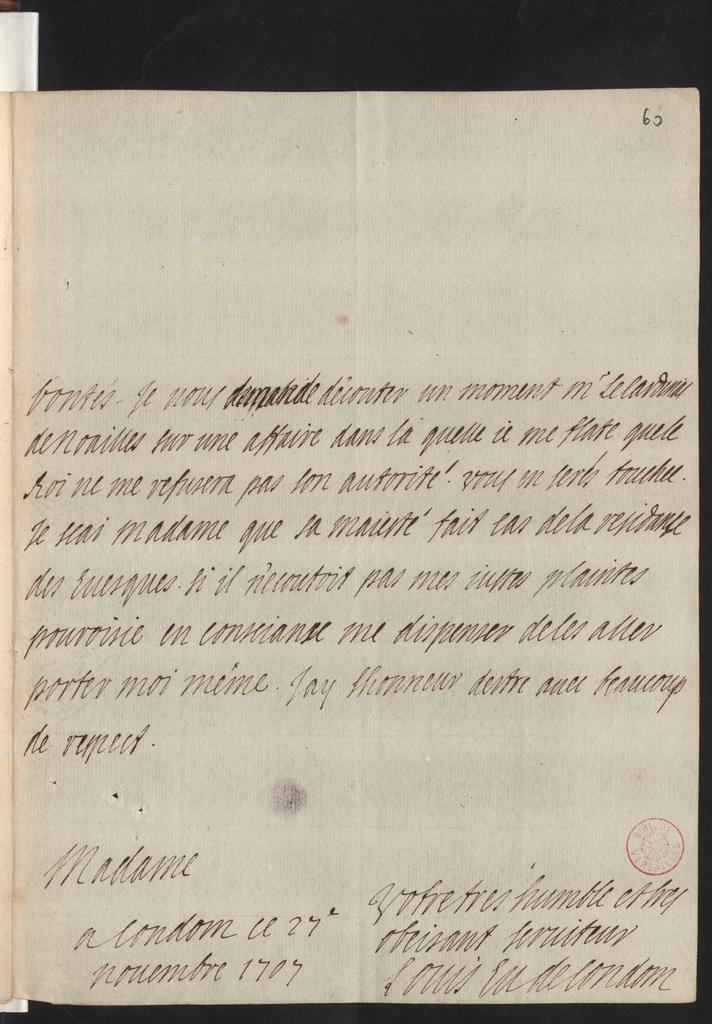 60
bontés. Je vous demande découter un moment mr Le cardinal
de Noailles sur une affaire dans la quelle ie me flate quele
Roi ne me refusera pas son autorité. vous en serés touchée.
Je scai madame que sa maiesté fait cas dela residance
des Euesques. si il n'ecoutoit pas mes iustes plaintes
pouroisie en consciance me dispenser deles aller
porter moi même. Jay lhonneur destre auec beaucoup
de respect.
Madame
a Condom ce 27e
nouembre 1707
Votre tres humble et tres
obeissant seruiteur
Louis Eu de Condom
BIBL. DE VERSAILLES